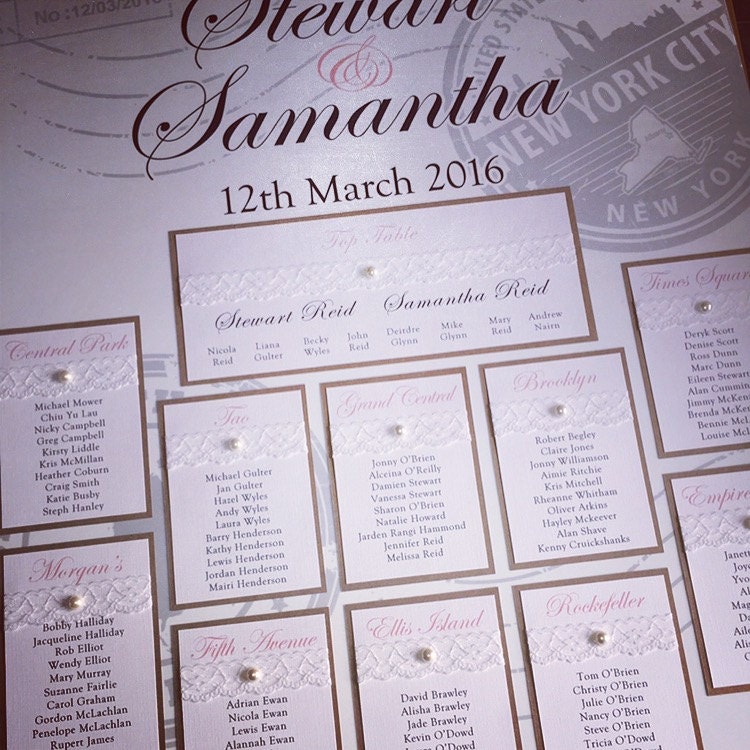 No: 12/03/2016
Stewart
&
Samantha
12th March 2016
UNITED STATES
NEW YORK CITY
NEW YORK
Top Table
Stewart Reid Samantha Reid
Nicola Reid
Liana Gulter
Becky Wyles
John Reid
Deirdre Glynn
Mike Glynn
Mary Reid
Andrew Nairn
Central Park
Michael Mower
Chiu Yu Lau
Nicky Campbell
Greg Campbell
Kirsty Liddle
Kris McMillan
Heather Coburn
Craig Smith
Katie Busby
Steph Hanley
Tao
Michael Gulter
Jan Gulter
Hazel Wyles
Andy Wyles
Laura Wyles
Barry Henderson
Kathy Henderson
Lewis Henderson
Jordan Henderson
Mairi Henderson
Grand Central
Jonny O'Brien
Alceina O'Reilly
Damien Stewart
Vanessa Stewart
Sharon O'Brien
Natalie Howard
Jarden Rangi Hammond
Jennifer Reid
Melissa Reid
Brooklyn
Robert Begley
Claire Jones
Jonny Williamson
Aimie Ritchie
Kris Mitchell
Rheanne Whitham
Oliver Atkins
Hayley Mckeever
Alan Shave
Kenny Cruickshanks
Times Squar
Deryk Scott
Denise Scott
Ross Dunn
Marc Dunn
Eileen Stewart
Alan Commin
Jimmy McKen
Brenda McKen
Bennie McK
Louise McK
Morgan's
Bobby Halliday
Jacqueline Halliday
Rob Elliot
Wendy Elliot
Mary Murray
Suzanne Fairlie
Carol Graham
Gordon McLachlan
Penelope McLachlan
Rupert James
Fifth Avenue
Adrian Ewan
Nicola Ewan
Lewis Ewan
Alannah Ewan
Ellis Island
David Brawley
Alisha Brawley
Jade Brawley
Kevin O'Dowd
O'Dowd
Rockefeller
Tom O'Brien
Christy O'Brien
Julie O'Brien
Nancy O'Brien
Steve O'Brien
Tricia O'Brien
Empire